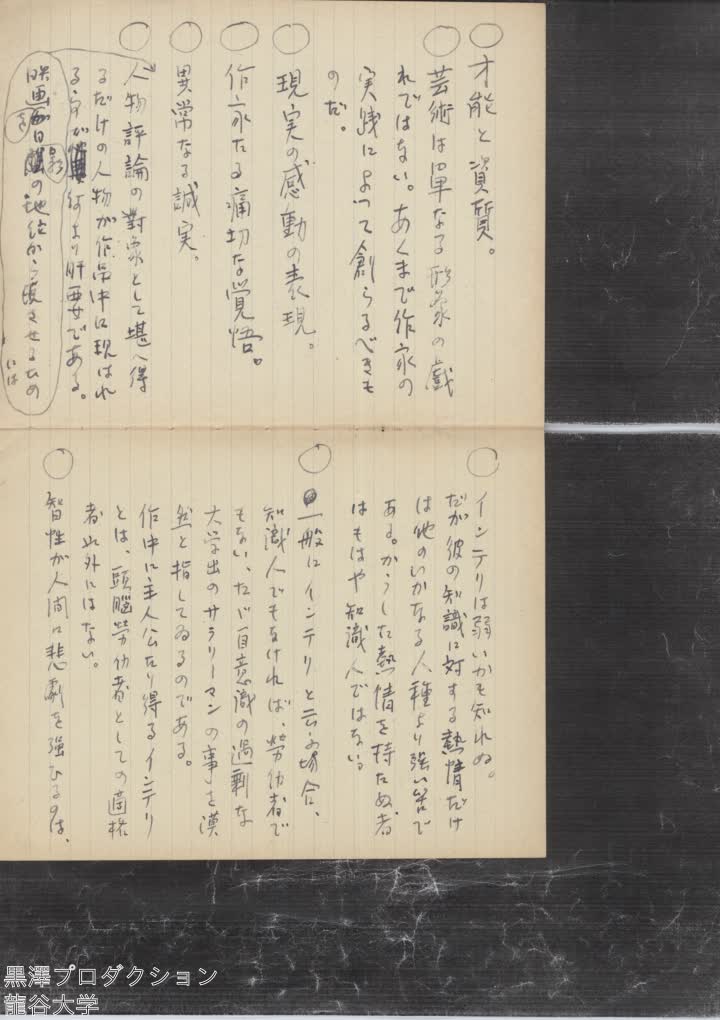 ○才能と資質。
○芸術は単なる形象の戯
れではない。あくまで作家の
実践によって創らるべきも
のだ。
○現実の感動の表現。
○作家たる痛切な覚悟。
○異常なる誠実。
○人物評論の對象として堪へ得
るだけの人物が作品中に現はれ
る事が何より肝要である。
映画を日影の地位から
には
○インテリは弱いかも知れぬ。
だが彼の知識に対する熱情だけ
は他のいかなる人種より強い筈で
ある。かうした熱情を持たぬ者
はもはや知識人ではない。
○一般にインテリと云ふ場合、
知識人でもなければ、勞仂者で
もない、たゞ自意識の過剰な
大学出のサラリーマンの事を漠
然と指してゐるのである。
作中に主人公たり得るインテリ
とは、頭腦勞仂者としての適格
者以外にはない。
○智性が人間に悲劇を強ひるのは、
黒澤プロダクション
龍谷大学